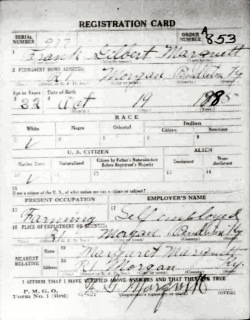 REGISTRATION CARD
SERIAL NUMBER 927 ORDER NUMBER A 853
1 Frank Gilbert Marquett
2 PERMANENT HOME ADDRESS:
R 1 Morgan Pendleton Ky
Age in Years Date of Birth
32 Oct 19 1885
RACE
White Negro Oriental Indian
Citizen Noncitizen
U. S. CITIZEN ALIEN
Native Born Naturalized Citizen by Father's Naturalization Before Registrant's Majority Declarant Non-declarant
15 If not a citizen of the U. S., of what nation are you a citizen or subject?
PRESENT OCCUPATION EMPLOYER'S NAME
Farming Self employed
18 PLACE OF EMPLOYMENT OR BUSINESS:
R 1 Morgan Pendleton Ky
NEAREST RELATIVE
Margaret
Morgan Ky
I AFFIRM THAT I HAVE VERIFIED ABOVE ANSWERS AND THAT THEY ARE TRUE
P. M. G. O.
Form No. 1 (Red)